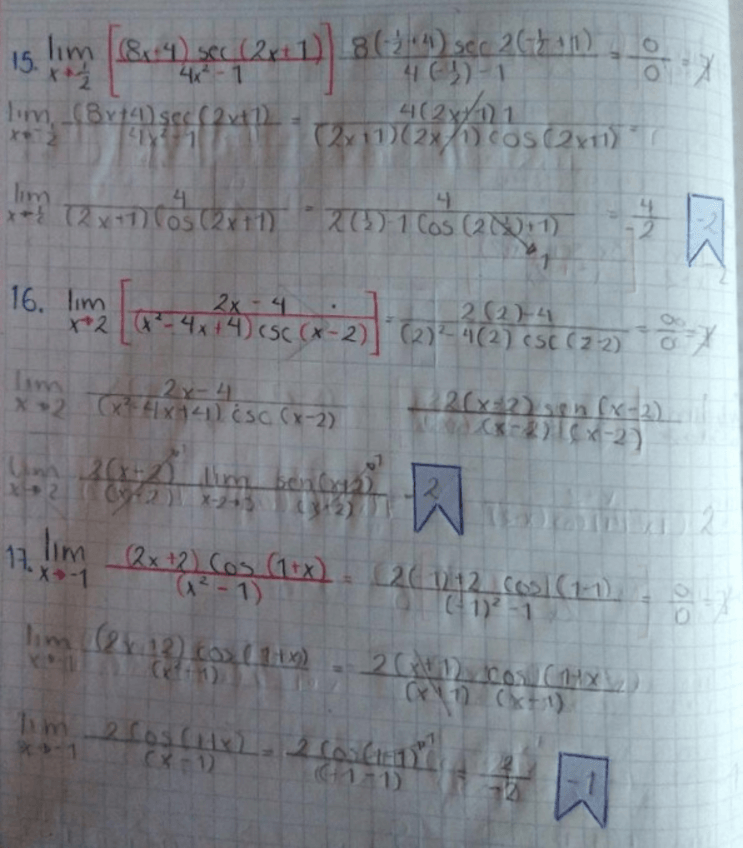 15. lim x→-1/2 [(8x+4) sec (2x+1) / 4x² - 1] 8(-1/2+4) sec 2(-1/2+1) / 4(-1/2)-1 = 0/0 = x
lim x→-1/2 (8x+4) sec (2x+1) / 4x²-1 = 4(2x+1) 1 / (2x+1)(2x-1) cos (2x+1) =
lim x→-1/2 4 / (2x+1) Cos (2x+1) = 4 / 2(1/2)-1 Cos (2(1/2)+1) = 4 / -2 -2
1
16. lim x→2 [2x-4 / (x²-4x+4) csc (x-2)] = 2(2)-4 / (2)²-4(2) csc (2-2) = ∞/0 = x
lim x→2 2x-4 / (x²-4x+4) csc (x-2) 2(x-2) sen (x-2) / (x-2)(x-2)
lim x→2 2(x-2) / (x-2) lim x-2→0 sen(x-2) / (x-2) = 2
17. lim x→-1 (2x+2) Cos (1+x) / (x²-1) = (2(-1)+2 cos (1-1) / (-1)²-1 = 0/0 = x
lim x→-1 (2x+2) cos (1+x) / (x²-1) = 2(x+1) cos (1+x) / (x+1) (x-1)
lim x→-1 2 Cos (1+x) / (x-1) = 2 Cos (1-1) / (-1-1) = 2 / -2 -1